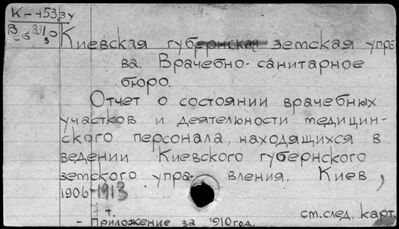 К-453зу
В-5
Киевская губернская земская упра
ва. Врачебно-санитарное
бюро.
Отчет о состоянии врачебных
участков и деятельности медицин-
ского персонала, находящихся в
ведении Киевского губернского
земского упра- вления. Киев,
1906-1913
т. см.след. карт.
- Приложение за 1910год.